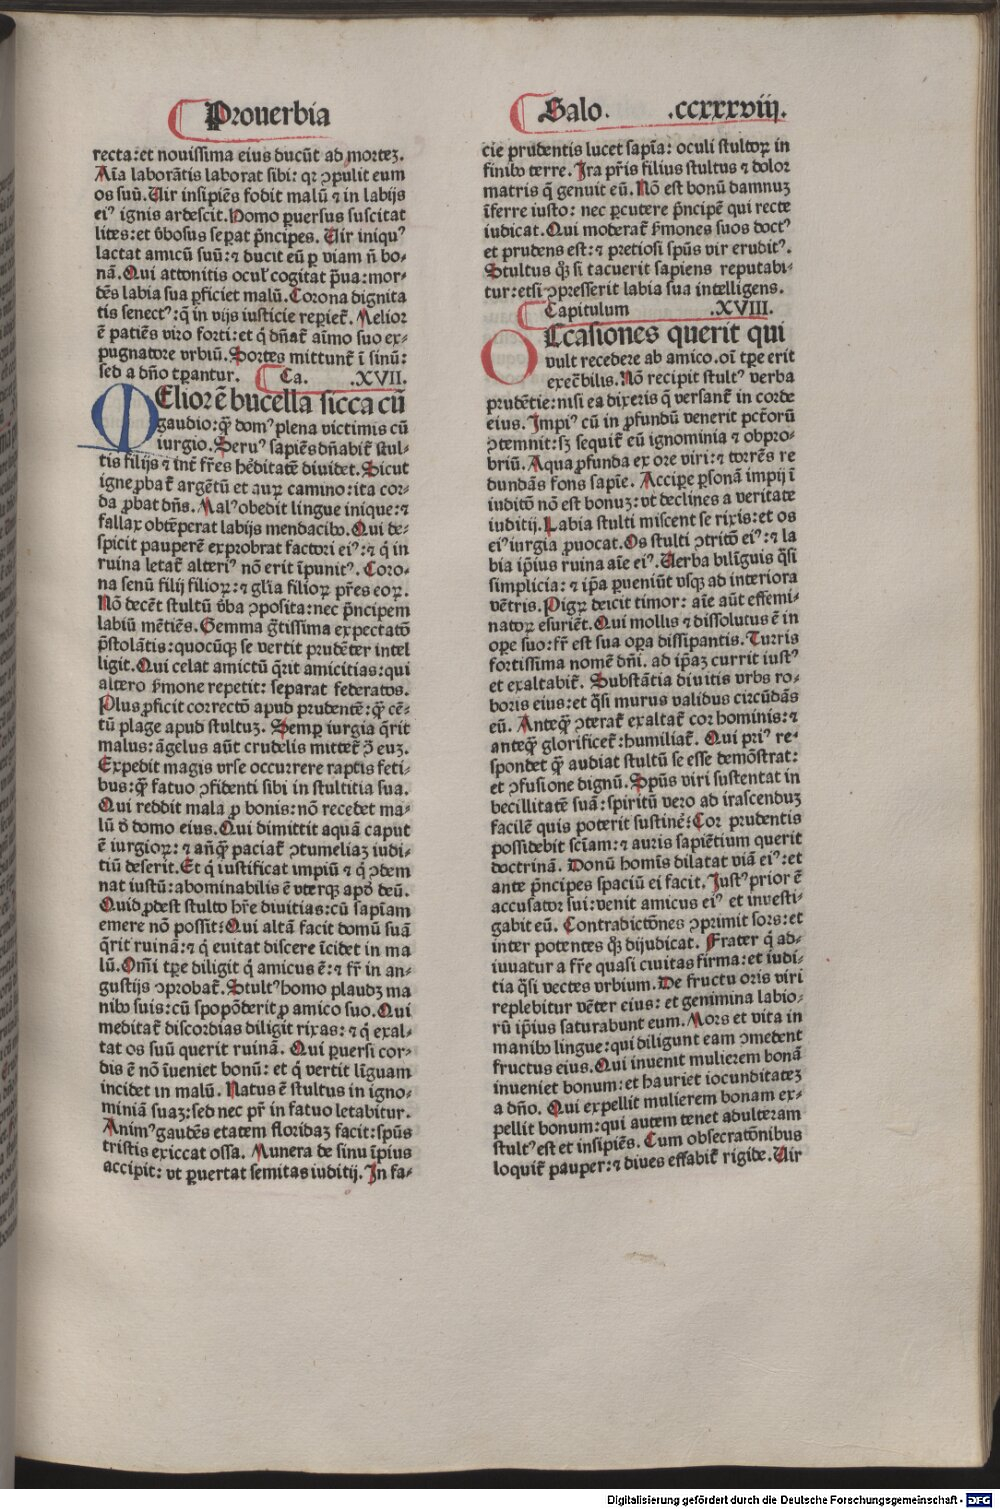 Prouerbia
recta: et nouissima eius ducūt ad mortēꝫ.
Aīa laborātis laborat sibi: qꝛ ꝯpulit eum
os suū. Uir insipiēs fodit malū ⁊ in labijs
eiꝰ ignis ardescit. Homo ꝑuersus suscitat
lites: et v̓bosus seꝑat p̄ncipes. Uir iniquꝰ
lactat amicū suū: ⁊ ducit eū ꝑ viam n̄ bo-
nā. Qui attonitis oculꝭ cogitat p̄ua: mor-
dēs labia sua ꝑficiet malū. Corona dignita
tis senectꝰ: q̄ in vijs iusticie reꝑiet᷑. Melior
ē patiēs viro forti: et q̇ dn̄at᷑ aīmo suo ex-
pugnatore vrbiū. Sortes mittunt᷑ ī sinū:
sed a dn̄o tꝑantur. Ca. .XVII.
MElior ē bucella sicca cū
gaudio: q̄ꝫ domꝰ plena victimis cū
iurgio. Seruꝰ sapiēs dn̄abit᷑ stul-
tis filijs ⁊ int̓ fr̄es hēditatē diuidet. Sicut
igne ꝓbat᷑ argētū et auꝝ camino: ita cor-
da ꝓbat dn̄s. Malꝰ obedit lingue inique: ⁊
fallax obtēperat labijs mendacibꝰ. Qui de-
spicit pauperē exprobrat factori eiꝰ: ⁊ q̇ in
ruina letat᷑ alteriꝰ nō erit īpunitꝰ. Coro-
na senū filij filioꝝ: ⁊ gl̄ia filioꝝ pr̄es eoꝝ.
Nō decēt stultū v̓ba ꝯposita: nec p̄ncipem
labiū mētiēs. Gemma gr̄tissima expectatō
p̄stolātis: quocūqꝫ se vertit prudēter intel
ligit. Qui celat amictū q̄rit amicitias: qui
altero ẜmone repetit: separat federatos.
Plus ꝓficit correctō apud prudentē: q̄ꝫ cē-
tū plage apud stultuꝫ. Semꝑ iurgia q̄rit
malus: āgelus aūt crudelis mittet᷑ ꝯ̄ euꝫ.
Expedit magis vrse occurrere raptis feti-
bus: q̄ꝫ fatuo ꝯfidenti sibi in stultitia sua.
Qui reddit mala ꝓ bonis: nō recedet ma-
lū d̓ domo eius. Qui dimittit aquā caput
ē iurgioꝝ: ⁊ anq̄ꝫ paciat᷑ ꝯtumeliaꝫ iudi-
tiū deserit. Et q̇ iustificat impiū ⁊ q̇ ꝯdem
nat iustū: abominabilis ē vterqꝫ apd̓ deū.
Quid ꝓdest stulto hr̄e diuitias: cū sapīam
emere nō possit: Qui altā facit domū suā
q̄rit ruinā: ⁊ q̇ euitat discere īcidet in ma
lū. Om̄i tꝑe diligit q̇ amicus ē: ⁊ fr̄ in an-
gustijs ꝯprobat᷑. Stultꝰ homo plaudꝫ ma
nibꝰ suis: cū spopōderit ꝓ amico suo. Qui
meditat᷑ discordias diligit rixas: ⁊ q̇ exal-
tat os suū querit ruinā. Qui ꝑuersi cor-
dis ē nō īueniet bonū: et q̇ vertit līguam
incidet in malū. Natus ē stultus in igno-
miniā suaꝫ: sed nec pr̄ in fatuo letabitur.
Animꝰ gaudēs etatem floridaꝫ facit: sp̄us
tristis exiccat ossa. Munera de sinu īpius
accipit: vt ꝑuertat semitas iuditij. In fa-
Salo. .ccxxxviij.
cie prudentis lucet sapīa: oculi stultoꝝ in
finibꝰ terre. Ira pr̄is filius stultus ⁊ dolor
matris q̄ genuit eū. Nō est bonū damnuꝫ
īferre iusto: nec ꝑcutere p̄ncipē qui recte
iudicat. Qui moderat᷑ ẜmones suos doctꝰ
et prudens est: ⁊ pretiosi sp̄us vir eruditꝰ.
Stultus qꝫ si tacuerit sapiens reputabi-
tur: etsi ꝯpresserit labia sua intelligens.
Capitulum .XVIII.
OCcasiones querit qui
vult recedere ab amico. oī tꝑe erit
execͣbilis. Nō recipit stultꝰ verba
prudētie: nisi ea dixeris q̄ versant᷑ in corde
eius. Impiꝰ cū in ꝓfundū venerit pct̄orū
ꝯtemnit: sꝫ sequit᷑ eū ignominia ⁊ obpro-
briū. Aqua ꝓfunda ex ore viri: ⁊ torrēs re
dundās fons sapīe. Accipe ꝑsonā impij ī
iuditō nō est bonuꝫ: vt declines a veritate
iuditij. Labia stulti miscent se rixis: et os
eiꝰ iurgia ꝓuocat. Os stulti ꝯtritō eiꝰ: ⁊ la
bia ip̄ius ruina aīe eiꝰ. Uerba bilīguis q̄si
simplicia: ⁊ ip̄a ꝑueniūt vsqꝫ ad interiora
vētris. Pigꝝ deicit timor: aīe aūt effemi-
natoꝝ esuriēt. Qui mollis ⁊ dissolutus ē in
oꝑe suo: fr̄ est sua oꝑa dissipantis. Turris
fortissima nomē dn̄i. ad ip̄aꝫ currit iustꝰ
et exaltabit᷑. Substātia diuitis vrbs ro-
boris eius: et q̄si murus validus circūdās
eū. Anteq̄ꝫ ꝯterat᷑ exaltat᷑ cor hominis: ⁊
anteq̄ꝫ glorificet᷑: humiliat᷑. Qui priꝰ re-
spondet q̄ꝫ audiat stultū se esse demōstrat:
et ꝯfusione dignū. Sp̄us viri sustentat in
becillitatē suā: spiritū vero ad irascenduꝫ
facilē quis poterit sustinēͬ: Cor prudentis
possidebit sc̄iam: ⁊ auris sapiētium querit
doctrinā. Donū homīs dilatat viā eiꝰ: et
ante p̄ncipes spaciū ei facit. Justꝰ prior ē
accusator sui: venit amicus eiꝰ et inuesti-
gabit eū. Contradictōnes ꝯprimit sors: et
inter potentes qꝫ dijudicat. Frater q̇ ad-
iuuatur a fr̄e quasi ciuitas firma: et iudi-
tia q̄si vectes vrbium. De fructu oris viri
replebitur vēter eius: et genimina labio-
rū ip̄ius saturabunt eum. Mors et vita in
manibꝰ lingue: qui diligunt eam ꝯmedent
fructus eius. Qui inuenit mulierem bonā
inueniet bonum: et hauriet iocunditateꝫ
a dn̄o. Qui expellit mulierem bonam ex-
pellit bonum: qui autem tenet adulteram
stultꝰ est et insipiēs. Cum obsecratōnibus
loquit᷑ pauper: ⁊ diues effabit᷑ rigide. Uir
Digitalisierung gefördert durch die Deutsche Forschungsgemeinschaft - DFG